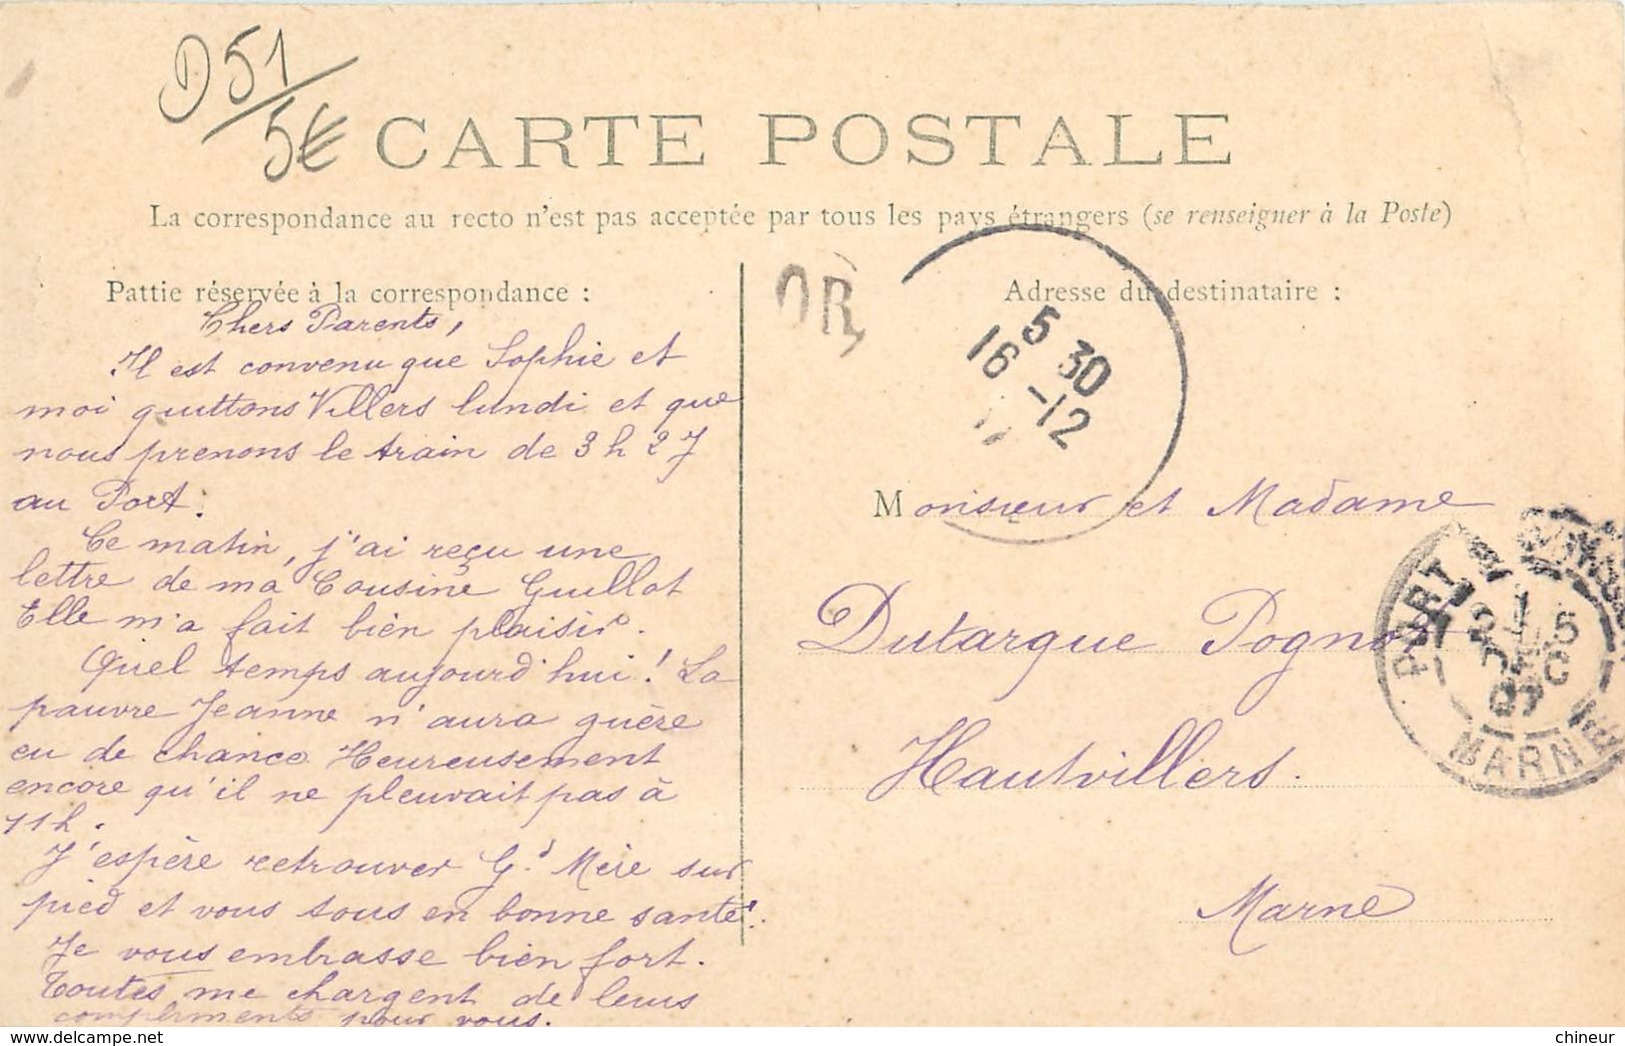 D51
5€
CARTE POSTALE
La correspondance au recto n'est pas acceptée par tous les pays étrangers (se renseigner à la Poste)
Pattie réservée à la correspondance :
Chers Parents,
Il est convenu que Sophie et
moi quittons Villers lundi et que
nous prenons le train de 3 h 27
au Port.
Ce matin, j'ai reçu une
lettre de ma Cousine Guillot
Elle m'a fait bien plaisir.
Quel temps aujourd'hui ! La
pauvre Jeanne n'aura guère
eu de chance Heureusement
encore qu'il ne pleuvait pas à
11h.
J'espère retrouver Gd Mère sur
pied et vous tous en bonne santé.
Je vous embrasse bien fort.
Toutes me chargent de leurs
compliments pour vous.
OR
5 30
16 -12
Adresse du destinataire :
Monsieur et Madame
Dutarque Pognot
Hautvillers.
Marne
PORT À
5
DEC
07
MARNE
Delcampe.net
chineur